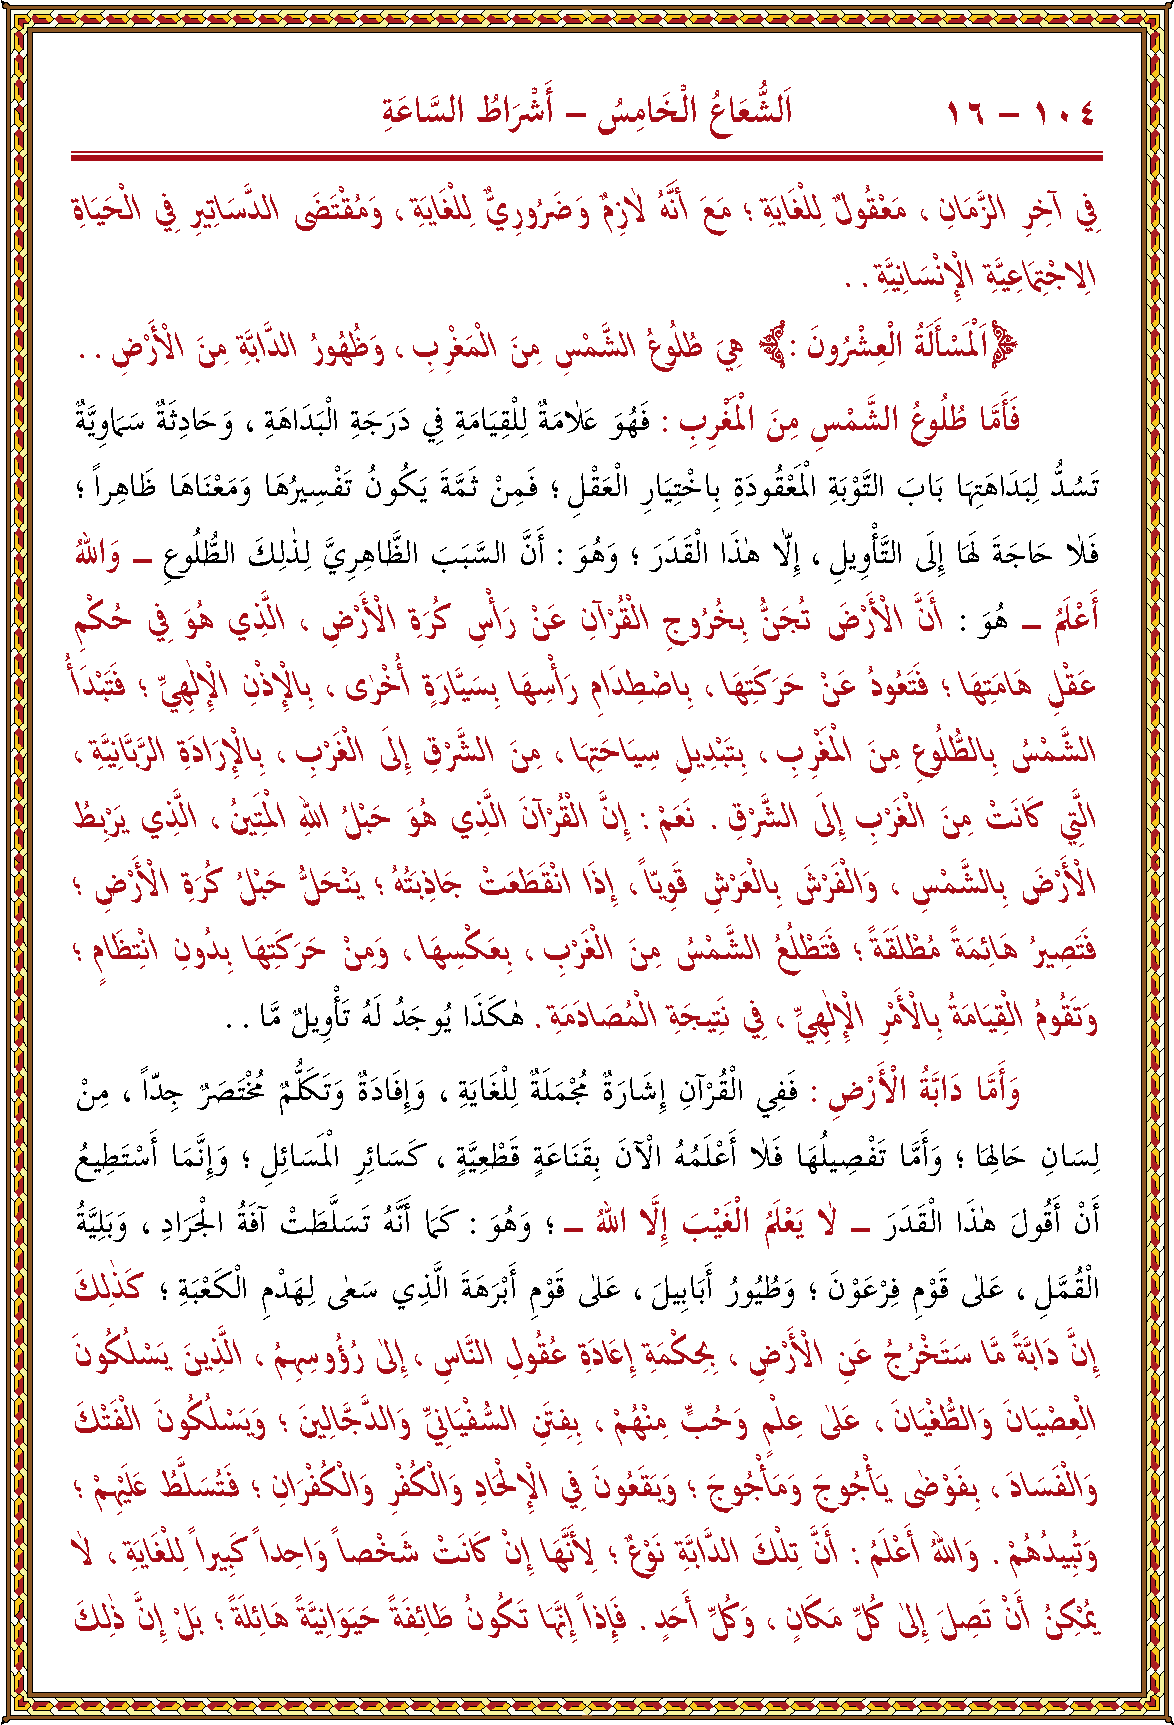 ١٠٤ – ١٦ اَلشُّعَاعُ الْخَامِسُ – أَشْرَاطُ السَّاعَةِ
فِي آخِرِ الزَّمَانِ ، مَعْقُولٌ لِلْغَايَةِ ؛ مَعَ أَنَّهُ لَازِمٌ وَضَرُورِيٌّ لِلْغَايَةِ ، وَمُقْتَضَى الدَّسَاتِيرِ فِي الْحَيَاةِ
الِاجْتِمَاعِيَّةِ الْإِنْسَانِيَّةِ . .
﴿اَلْمَسْأَلَةُ الْعِشْرُونَ :﴾ هِيَ طُلُوعُ الشَّمْسِ مِنَ الْمَغْرِبِ ، وَظُهُورُ الدَّابَّةِ مِنَ الْأَرْضِ . .
فَأَمَّا طُلُوعُ الشَّمْسِ مِنَ الْمَغْرِبِ : فَهُوَ عَلَامَةٌ لِلْقِيَامَةِ فِي دَرَجَةِ الْبَدَاهَةِ ، وَحَادِثَةٌ سَمَاوِيَّةٌ
تَسُدُّ لِبَدَاهَتِهَا بَابَ التَّوْبَةِ الْمَعْقُودَةِ بِاخْتِيَارِ الْعَقْلِ ؛ فَمِنْ ثَمَّةَ يَكُونُ تَفْسِيرُهَا وَمَعْنَاهَا ظَاهِراً ؛
فَلَا حَاجَةَ لَهَا إِلَى التَّأْوِيلِ ، إِلَّا هٰذَا الْقَدَرَ ؛ وَهُوَ : أَنَّ السَّبَبَ الظَّاهِرِيَّ لِذٰلِكَ الطُّلُوعِ – وَاللهُ
أَعْلَمُ – هُوَ : أَنَّ الْأَرْضَ تُجَنُّ بِخُرُوجِ الْقُرْآنِ عَنْ رَأْسِ كُرَةِ الْأَرْضِ ، الَّذِي هُوَ فِي حُكْمِ
عَقْلِ هَامَتِهَا ؛ فَتَعُودُ عَنْ حَرَكَتِهَا ، بِاصْطِدَامِ رَأْسِهَا بِسَيَّارَةٍ أُخْرٰى ، بِالْإِذْنِ الْإِلٰهِيِّ ؛ فَتَبْدَأُ
الشَّمْسُ بِالطُّلُوعِ مِنَ الْمَغْرِبِ ، بِتَبْدِيلِ سِيَاحَتِهَا ، مِنَ الشَّرْقِ إِلَى الْغَرْبِ ، بِالْإِرَادَةِ الرَّبَّانِيَّةِ ،
الَّتِي كَانَتْ مِنَ الْغَرْبِ إِلَى الشَّرْقِ . نَعَمْ : إِنَّ الْقُرْآنَ الَّذِي هُوَ حَبْلُ اللهِ الْمَتِينُ ، الَّذِي يَرْبِطُ
الْأَرْضَ بِالشَّمْسِ ، وَالْفَرْشَ بِالْعَرْشِ قَوِيّاً ، إِذَا انْقَطَعَتْ جَاذِبَتُهُ ؛ يَنْحَلُّ حَبْلُ كُرَةِ الْأَرْضِ ؛
فَتَصِيرُ هَائِمَةً مُطْلَقَةً ؛ فَتَطْلُعُ الشَّمْسُ مِنَ الْغَرْبِ ، بِعَكْسِهَا ، وَمِنْ حَرَكَتِهَا بِدُونِ انْتِظَامٍ ؛
وَتَقُومُ الْقِيَامَةُ بِالْأَمْرِ الْإِلٰهِيِّ ، فِي نَتِيجَةِ الْمُصَادَمَةِ . هٰكَذَا يُوجَدُ لَهُ تَأْوِيلٌ مَّا . .
وَأَمَّا دَابَّةُ الْأَرْضِ : فَفِي الْقُرْآنِ إِشَارَةٌ مُجْمَلَةٌ لِلْغَايَةِ ، وَإِفَادَةٌ وَتَكَلُّمٌ مُخْتَصَرٌ جِدّاً ، مِنْ
لِسَانِ حَالِهَا ؛ وَأَمَّا تَفْصِيلُهَا فَلَا أَعْلَمُهُ الْآنَ بِقَنَاعَةٍ قَطْعِيَّةٍ ، كَسَائِرِ الْمَسَائِلِ ؛ وَإِنَّمَا أَسْتَطِيعُ
أَنْ أَقُولَ هٰذَا الْقَدَرَ – لَا يَعْلَمُ الْغَيْبَ إِلَّا اللهُ – ؛ وَهُوَ : كَمَا أَنَّهُ تَسَلَّطَتْ آفَةُ الْجَرَادِ ، وَبَلِيَّةُ
الْقُمَّلِ ، عَلٰى قَوْمِ فِرْعَوْنَ ؛ وَطُيُورُ أَبَابِيلَ ، عَلٰى قَوْمِ أَبْرَهَةَ الَّذِي سَعٰى لِهَدْمِ الْكَعْبَةِ ؛ كَذٰلِكَ
إِنَّ دَابَّةً مَّا سَتَخْرُجُ عَنِ الْأَرْضِ ، بِحِكْمَةِ إِعَادَةِ عُقُولِ النَّاسِ ، إِلٰى رُؤُوسِهِمُ ، الَّذِينَ يَسْلُكُونَ
الْعِصْيَانَ وَالطُّغْيَانَ ، عَلٰى عِلْمٍ وَحُبٍّ مِنْهُمْ ، بِفِتَنِ السُّفْيَانِيِّ وَالدَّجَّالِينَ ؛ وَيَسْلُكُونَ الْفَتْكَ
وَالْفَسَادَ ، بِفَوْضٰى يَأْجُوجَ وَمَأْجُوجَ ؛ وَيَقَعُونَ فِي الْإِلْحَادِ وَالْكُفْرِ وَالْكُفْرَانِ ؛ فَتُسَلَّطُ عَلَيْهِمْ ؛
وَتُبِيدُهُمْ . وَاللهُ أَعْلَمُ : أَنَّ تِلْكَ الدَّابَّةِ نَوْعٌ ؛ لِأَنَّهَا إِنْ كَانَتْ شَخْصاً وَاحِداً كَبِيراً لِلْغَايَةِ ، لَا
يُمْكِنُ أَنْ تَصِلَ إِلٰى كُلِّ مَكَانٍ ، وَكُلِّ أَحَدٍ . فَإِذاً إِنَّهَا تَكُونُ طَائِفَةً حَيَوَانِيَّةً هَائِلَةً ؛ بَلْ إِنَّ ذٰلِكَ